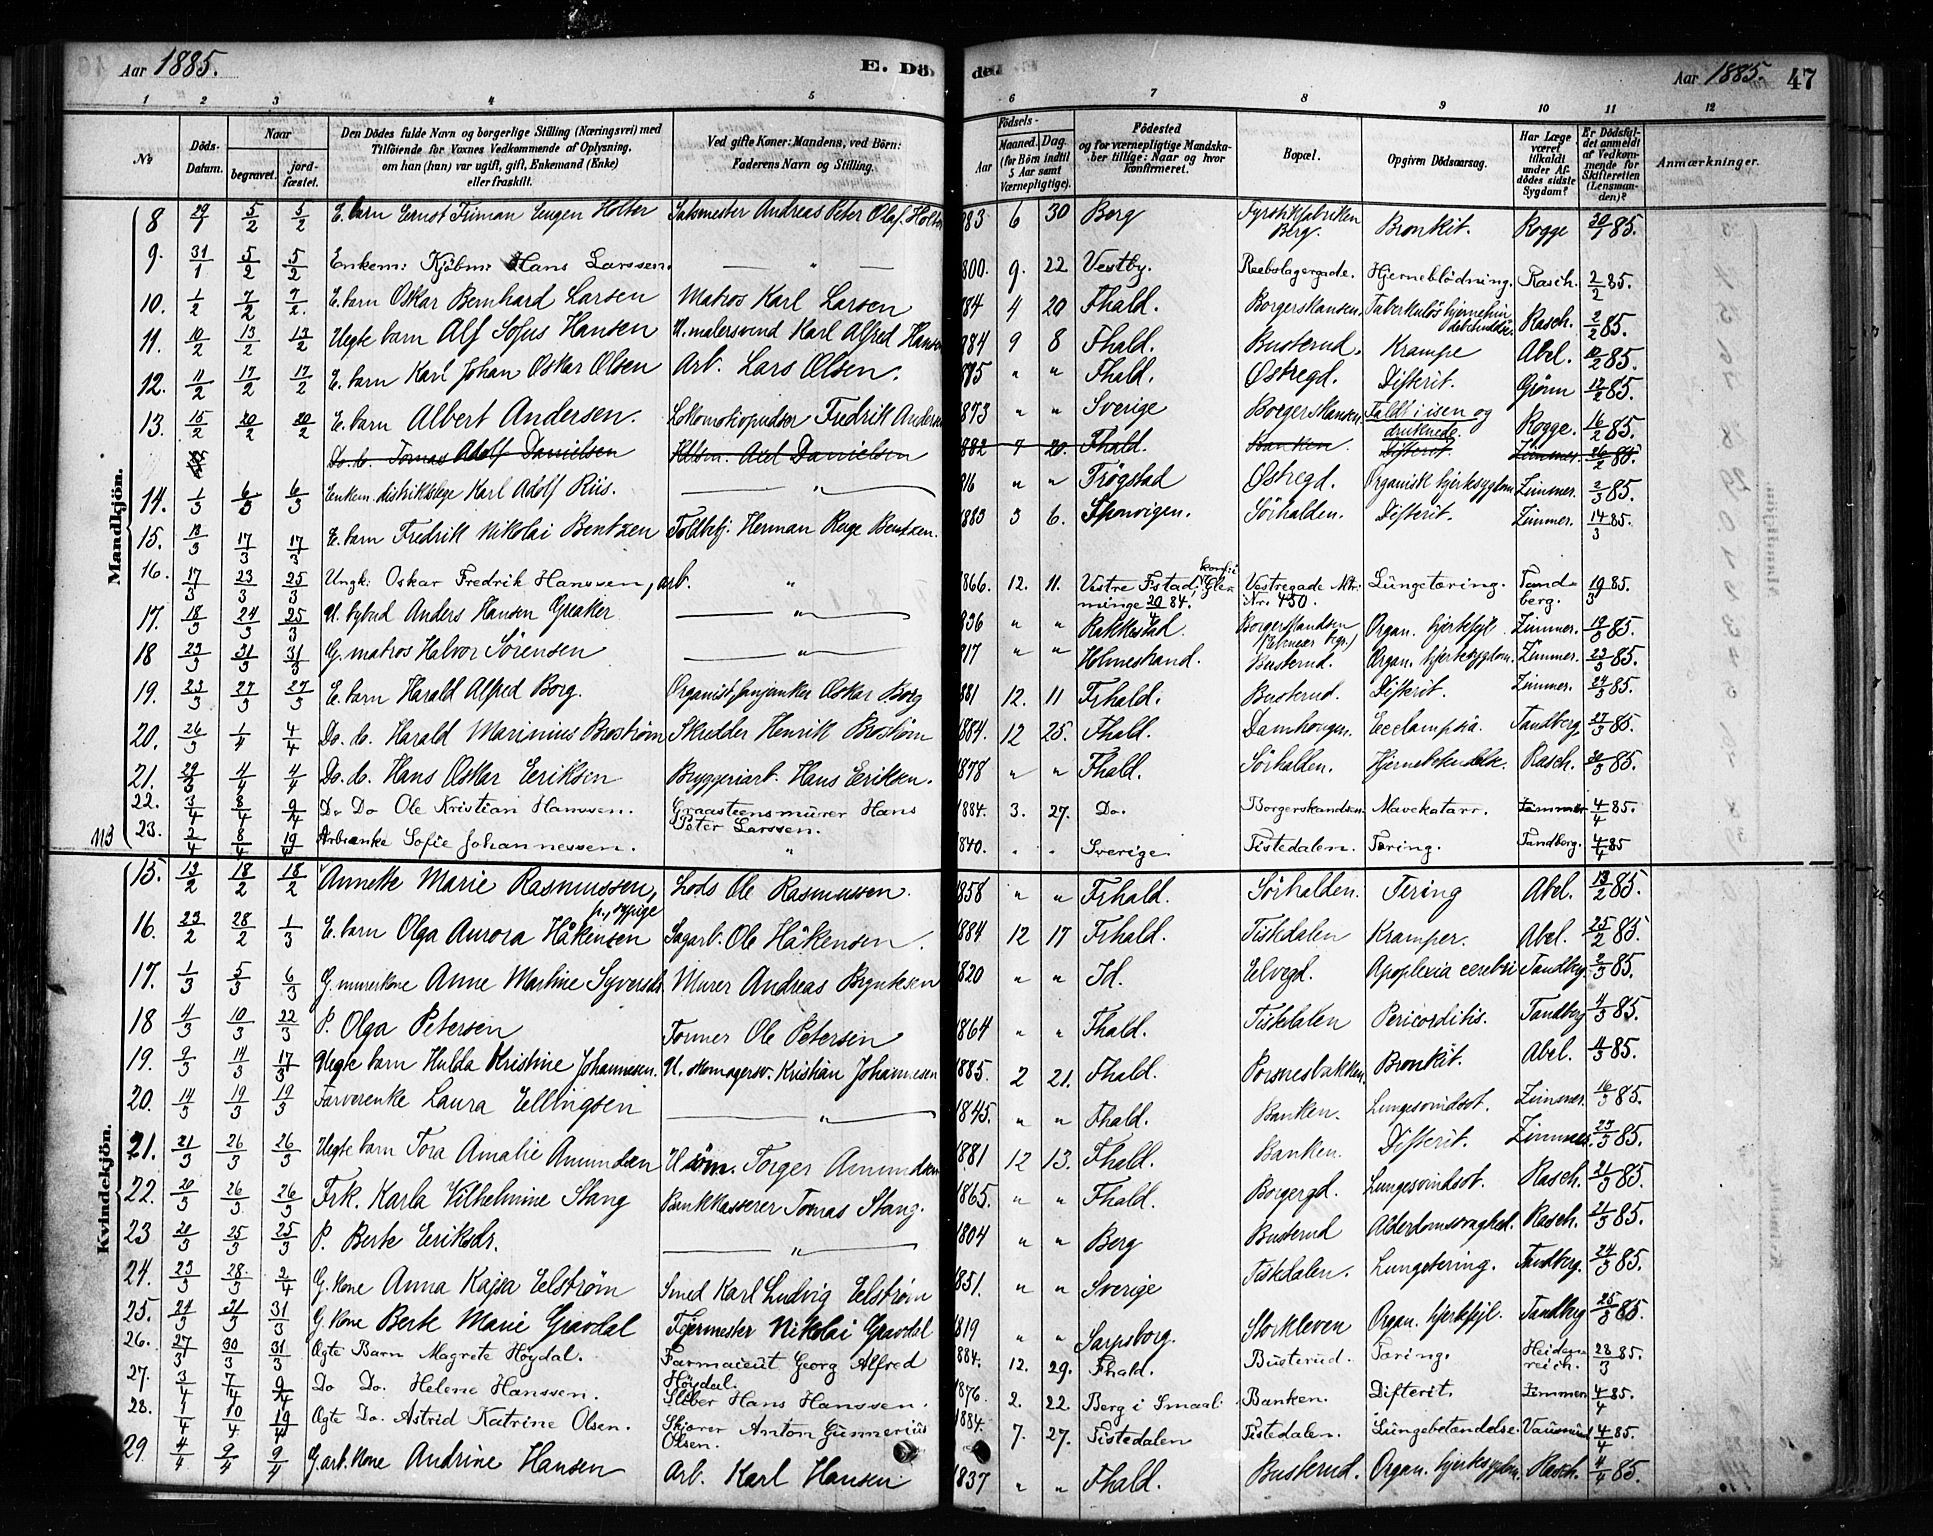 Aar 1885. E. Dö- de Aar 1885. 47
1 2 3 4 5 6 7 8 9 10 11 12
No Döds-Datum. Naar begravet. jord-fæstet. Den Dödes fulde Navn og borgerlige Stilling (Næringsvei) med Tilföiende for Voxnes Vedkommende af Oplysning, om han (hun) var ugift, gift, Enkemand (Enke) eller fraskilt. Ved gifte Koner: Mandens, ved Börn: Faderens Navn og Stilling. Aar Födsels- Maaned. Dag. (for Börn indtil 5 Aar samt Værnepligtige). Födested og for værnepligtige Mandskaber tillige: Naar og hvor konfirmeret. Bopæl. Opgiven Dödsaarsag. Har Læge været tilkaldt under Afdödes sidste Sygdom? Er Dödsfaldet anmeldt af Vedkommende for Skifteretten (Lensmanden)? Anmærkninger.
Mandkjön.
8 29/1 5/2 5/2 E. barn Ernst Eugen Holter Andreas Peter Olaf Holter 883 6 30 Berg Fyrstikfabriken Berg. Bronkit. Rogge 30/1 85.
9. 31/1 5/2 5/2 Enkem: Kjöbm: Hans Larssen. — " — 800. 9. 22 Vestby. Reebslagergade. Hjerneblödning. Rasch. 2/2 85.
10. 1/2 7/2 7/2. E. barn Oskar Bernhard Larsen Matros Karl Larsen 884 4 20 Fhald. Borgerskansen. Tuberkulös Rasch. 2/2 85.
11. 10/2 13/2 13/2 Uegte barn Alf Sofus Hansen U. malersvend Karl Alfred Hansen 884 9 8 Fhald. Busterud. Krampe Abel. 10/2 85.
12. 11/2 17/2 17/2 E. barn Karl Johan Oskar Olsen Arb. Lars Olsen. 875 " " Fhald. Østregd. Difterit. Grönn 12/2 85.
13. 15/2 20/2 20/2 E. barn Albert Andersen. Lokomotivpudser Fredrik Andersen 1873 " " Sverige Borgerskansen Faldt i isen og druknede. Rogge. 16/2 85.
Do. b. Tomas Adolf Danielsen Axel Danielsen 1882 7 20. Fhald. Banken Difterit Zimmer. 26/2 85.
14. 1/3 6/3 6/3 Enkem. distriktslæge Karl Adolf Riis. — " — 816 " " Trögstad Østregd. Organisk hjertesygdom Zimmer. 2/3 85.
15. 13/3 17/3 17/3 E. barn Fredrik Nikolai Bentzen Toldbetj. Herman Bentzen. 1883 3 6. Sponvigen. Sörhalden. Difterit. Zimmer. 14/3 85.
16. 17/3 23/3 25/3 Ungk: Oskar Fredrik Hanssen, arb. " 1866. 12. 11. Vestre Fstad, konf. i Glemminge 20/4 84. Vestregade Mtr. Nr. 450. Lungetæring. Tandberg. 19/3 85.
17. 18/3 24/3 25/3 U. bybud Anders Hansen Greaker — " — 836 " " Rakkestad. Borgerskandsen Organ. hjertefejl. Zimmer. 19/3 85.
18 23/3 31/3 31/3 G. matros Halvor Sörensen — " — 817 " " Holmestrand. Busterud. Organ. hjertesygdom. Zimmer. 23/3 85.
19. 23/3 27/3 27/3 E. barn Harald Alfred Borg. Organist, Oskar Borg 881 12. 11 Frhald. Busterud. Difterit. Zimmer. 24/3 85.
20. 26/3 1/4 4/4 Do. do. Harald Marinius Broström Skredder Henrik Broström 1884. 12 25. Fhald. Damhougen. Ecclampsia. Tandberg 27/3 85.
21. 29/3 4/4 4/4 Do. do. Hans Oskar Eriksen Bryggeriarb. Hans Eriksen. 1878 " " Fhald. Sörhalden. Hjernebetendelse. Rasch. 30/3 85.
22. 3/4 8/4 9/4 Do Do Ole Kristian Hanssen. Graastensmurer Hans Peter Larssen. 1884. 3. 27. Do. Borgerskandsen Mavekatarr. Zimmer 4/4 85.
23. 2/4 8/4 19/4 Arb.enke Sofie Johannessen. " 1840. " " Sverige. Tistedalen. Tæring. Tandberg. 4/4 85
Kvindekjön.
15. 13/2 18/2 18/2 Annette Marie Rasmussen, p., sypige Lods Ole Rasmussen. 1858 " " Frhald. Sörhalden. Tering Abel. 13/2 85.
16. 23/2 28/2 1/3 E. barn Olga Aurora Håkensen Sagarb. Ole Håkensen. 1884 12 17 Frhald. Tistedalen Kramper. Abel. 25/2 85.
17. 1/3 5/3 6/3 G. murerkone Anne Martine Syversdr. Murer Andreas Bryntesen 1820 " " Id. Elvegd. Apoplexia cerebri Tandberg 2/3 85.
18 4/3 10/3 22/3 P. Olga Petersen Former Ole Petersen 1864 " " Fhald. Tistedalen Pericarditis. Tandberg 4/3 85.
19. 9/3 14/3 17/3 Uegte barn Hulda Kristine Johannesen. U. skomagersv. Kristian Johannesen 1885. 2 21. Fhald. Porsnesbakken. Bronkit. Abel. 11/3 85.
20. 14/3 19/3 19/3 Farverenke Laura Ellingsen — " — 1845. " " Fhald. Banken. Lungesvindsot. Zimmer. 16/3 85.
21. 21/3 26/3 26/3 Uegte barn Tora Amalie Amundsen U. söm. Torger Amundsen 1881 12 13. Fhald. Banken. Difterit. Zimmer. 23/3 85.
22. 20/3 26/3 26/3 Frk. Karla Vilhelmine Stang Bankkasserer Tomas Stang. 1865. " " Fhald. Borgergd. Lungesvindsot. Rasch. 21/3 85.
23 20/3 25/3 25/3 P. Berte Eriksdr. — " — 1804 " " Berg Busterud Alderdomssvaghed. Rasch. 21/3 85.
24. 23/3 28/3 2/4 G. kone Anna Kajsa Elström Smed Karl Ludvig Elström 1851. " " Sverige Tistedalen. Lungetering. Tandberg. 24/3 85.
25. 24/3 31/3 31/3 G. kone Berte Marie Gravdal Fejermester Nikolai Gravdal 1819 " " Sarpsborg. Storkleven Organ. hjertefejl. Tandberg 25/3 85.
26. 27/3 30/3 31/3 Ægte Barn Magrete Höydal. Farmaceut Georg Alfred Höydal. 884. 12. 29. Fhald. Busterud. Tæring. Heidenreich. 28/3 85.
27. 3/4 7/4 9/4 Do Do. Helene Hanssen. Sliber Hans Hanssen. 1876. 2. 22. Berg i Smaal. Banken. Difterit. Zimmer 4/4 85.
28. 1/4 10/4 19/4 Ægte Do. Astrid Katrine Olsen. Skjærer Anton Gunnerius Olsen. 1884. 7. 27. Tistedalen Tistedalen. Lungebetændelse. 4/4 85.
29 4/4 9/4 9/4 G. arb. kone Andrine Hansen Arb. Karl Hansen 1837 " " Fhald. Busterud. Organ. hjertesygdom. Rasch. 4/4 85.